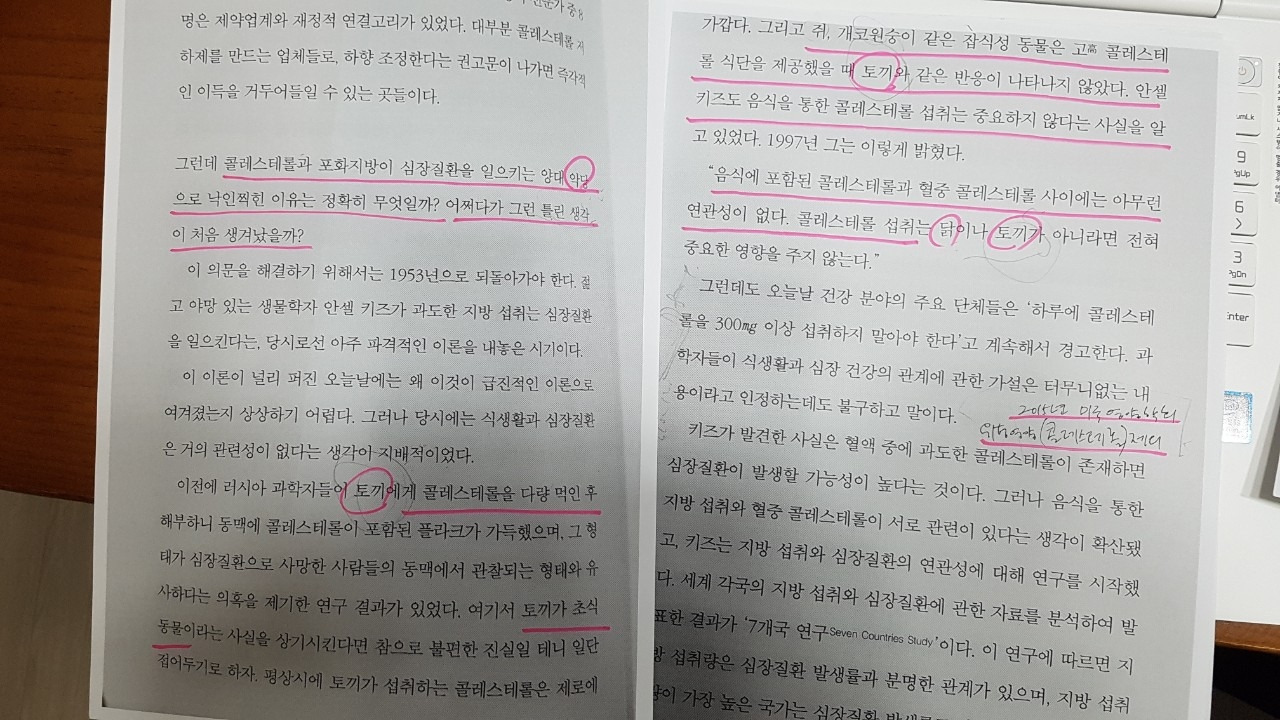 명은 제약업계와 재정적 연결고리가 있었다. 대부분 콜레스테롤 저
하제를 만드는 업체들로, 하향 조정한다는 권고문이 나가면 즉각적
인 이득을 거두어들일 수 있는 곳들이다.
그런데 콜레스테롤과 포화지방이 심장질환을 일으키는 양대 악당
으로 낙인찍힌 이유는 정확히 무엇일까? 어쩌다가 그런 틀린 생각
이 처음 생겨났을까?
이 의문을 해결하기 위해서는 1953년으로 되돌아가야 한다. 젊
고 야망 있는 생물학자 안셀 키즈가 과도한 지방 섭취는 심장질환
을 일으킨다는, 당시로선 아주 파격적인 이론을 내놓은 시기이다.
이 이론이 널리 퍼진 오늘날에는 왜 이것이 급진적인 이론으로
여겨졌는지 상상하기 어렵다. 그러나 당시에는 식생활과 심장질환
은 거의 관련성이 없다는 생각이 지배적이었다.
이전에 러시아 과학자들이 토끼에게 콜레스테롤을 다량 먹인 후
해부하니 동맥에 콜레스테롤이 포함된 플라크가 가득했으며, 그 형
태가 심장질환으로 사망한 사람들의 동맥에서 관찰되는 형태와 유
사하다는 의혹을 제기한 연구 결과가 있었다. 여기서 토끼가 초식
동물이라는 사실을 상기시킨다면 참으로 불편한 진실일 테니 일단
접어두기로 하자. 평상시에 토끼가 섭취하는 콜레스테롤은 제로에
가깝다. 그리고 쥐, 개코원숭이 같은 잡식성 동물은 고高 콜레스테
롤 식단을 제공했을 때 토끼와 같은 반응이 나타나지 않았다. 안셀
키즈도 음식을 통한 콜레스테롤 섭취는 중요하지 않다는 사실을 알
고 있었다. 1997년 그는 이렇게 밝혔다.
“음식에 포함된 콜레스테롤과 혈중 콜레스테롤 사이에는 아무런
연관성이 없다. 콜레스테롤 섭취는 닭이나 토끼가 아니라면 전혀
중요한 영향을 주지 않는다.”
그런데도 오늘날 건강 분야의 주요 단체들은 ‘하루에 콜레스테
롤을 300㎎ 이상 섭취하지 말아야 한다’고 계속해서 경고한다. 과
학자들이 식생활과 심장 건강의 관계에 관한 가설은 터무니없는 내
용이라고 인정하는데도 불구하고 말이다.
2015년 미국 영양학회
위험영양(콜레스테롤)제외
키즈가 발견한 사실은 혈액 중에 과도한 콜레스테롤이 존재하면
심장질환이 발생할 가능성이 높다는 것이다. 그러나 음식을 통한
지방 섭취와 혈중 콜레스테롤이 서로 관련이 있다는 생각이 확산됐
고, 키즈는 지방 섭취와 심장질환의 연관성에 대해 연구를 시작했
다. 세계 각국의 지방 섭취와 심장질환에 관한 자료를 분석하여 발
표한 결과가 ‘7개국 연구Seven Countries Study’이다. 이 연구에 따르면 지
방 섭취량은 심장질환 발생률과 분명한 관계가 있으며, 지방 섭취
량이 가장 높은 국가는 심장질환
umLk
9
PgUp
6
3
PgDn
Enter